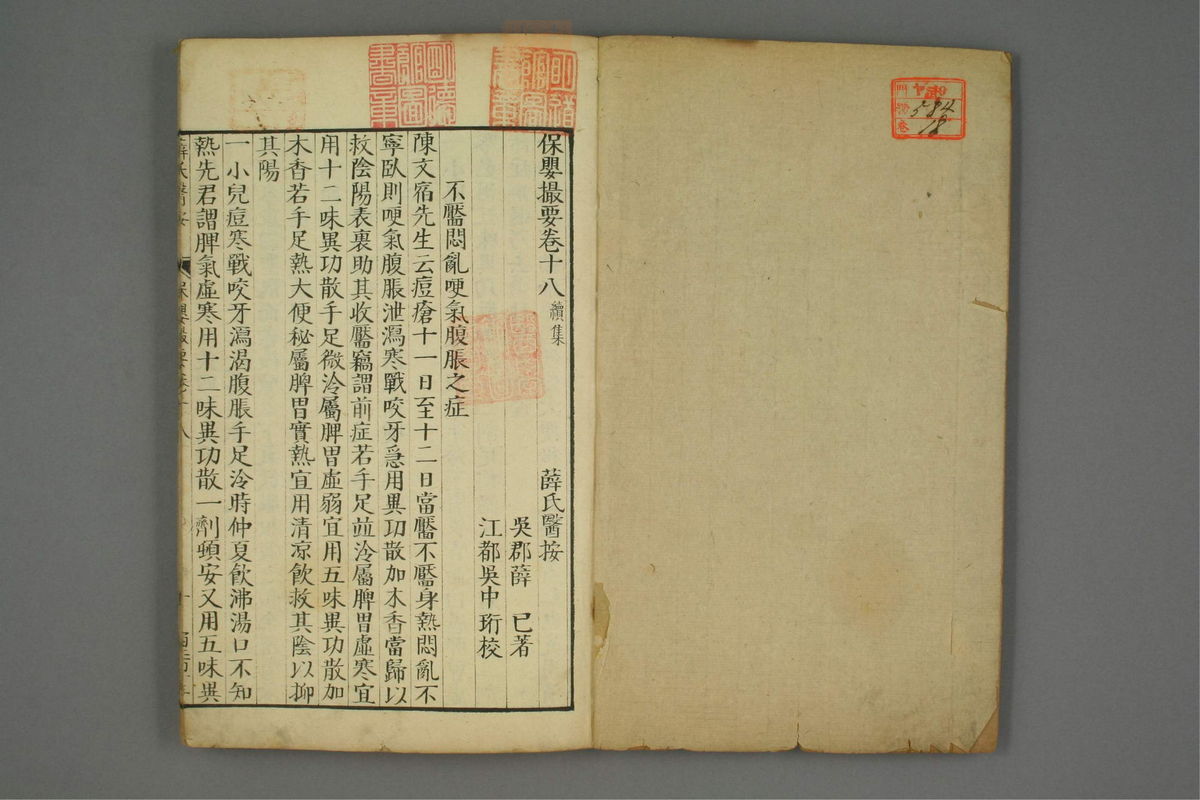 保嬰撮要卷十八 續集 薛氏醫按
吳郡薛 已著
江都吳中珩校
不靨悶亂哽氣腹脹之症
陳文宿先生云痘瘡十一日至十二日當靨不靨身熱悶亂不
寧臥則哽氣腹脹泄瀉寒戰咬牙急用異功散加木香當歸以
救陰陽表裏助其收靨竊謂前症若手足並冷屬脾胃虛寒宜
用十二味異功散手足微冷屬脾胃虛弱宜用五味異功散加
木香若手足熱大便秘屬脾胃實熱宜用清凉飲救其陰以抑
其陽
一小兒痘寒戰咬牙瀉渴腹脹手足冷時仲夏飲沸湯口不知
熱先君謂脾氣虛寒用十二味異功散一劑頓安又用五味異
薛氏醫按 保嬰撮要卷十八
584
18